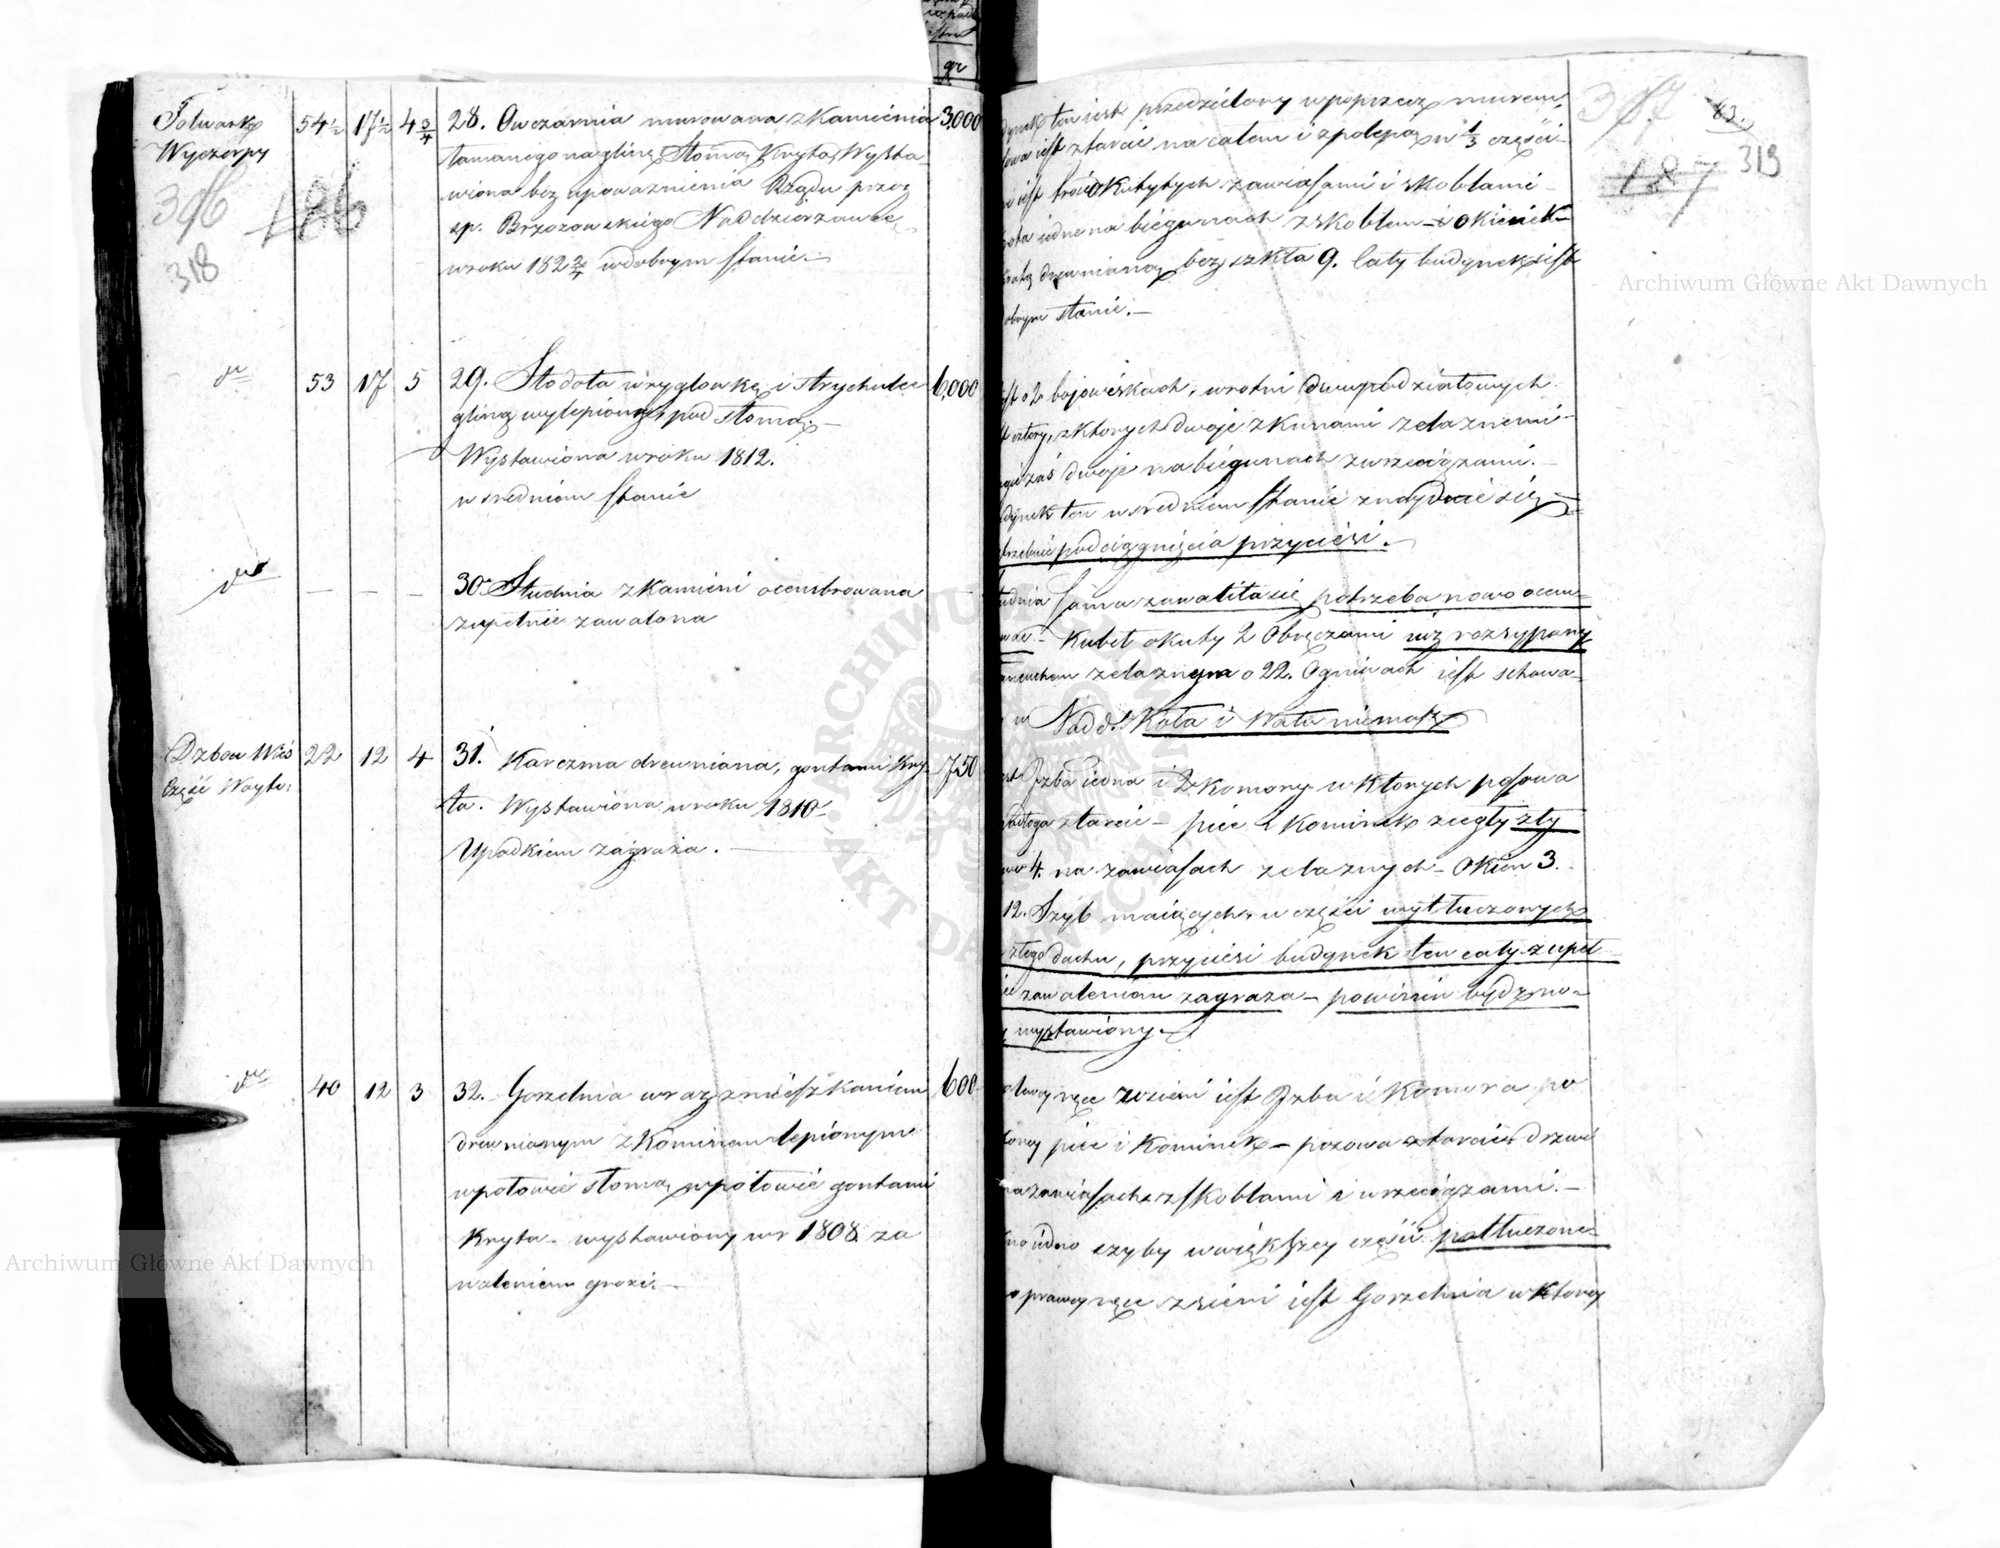 Folwark
Wyczerpy
54½ 17½ 4¾
28. Owczarnia murowana z Kamienia 3,000
łamanego na glinę Słomą Kryta, Wysta-
wiona bez upoważnienia Rządu przez
sp. Brzozowskiego Naddzierzawcę
w roku 182 w dobrym stanie.—
316 186
318
dto 53 17 5
29. Stodoła w ryglowkę i strychulce 6,000
gliną wylepiona, pod słomą.—
Wystawiona w roku 1812.
w srednim stanie
dto — — —
30. Studnia z Kamieni ocembrowana —
zupełnie zawalona
Dzbow Wieś
Część Woyto:
22 12 4
31. Karczma drewniana, gontami Kry- 750
ta. Wystawiona w roku 1810
Upadkiem zagraża.—
dto 40 12 3
32. Gorzelnia wraz z mieszkaniem 600
drewnianym z Kominem lepionym
w połowie słomą, w połowie gontami
Kryta— wystawiony w r 1808 za
waleniem grozi.—
ten iest przedzielony w poprzecz murem,
iest z tarcic na całem i z polepą w ⅓ części—
iest troie Okutych zawiasami i skoblami—
iedne na biegunach z skoblem— i okienek—
drewnianą bez szkła 9. laty budynek iest
dobrym stanie.—
307 83.
187 319
o 2 bojowiskach, wrotni dwupodziałowych
cztery, z ktorych dwoje z Kunami zelaznemi—
zaś dwoje na biegunach z wrzeciązami.—
ten w srednim stanie znayduie się—
podciągnięcia przyciesi.—
Sama zawaliła się potrzeba nowo ocem-
Kubeł okuty 2 Obręczami iuż rozsypany
zelaznym o 22. Ogniwach iest schowa-
w Nadd. Koła i Wału niemasz
Jzba iedna i 2 Komory w Ktorych posowa
z tarcic— piec i Kominek z cegły zły
4. na zawiasach zelaznych— Okien 3.
12. Szyb maiących, w części wytłuczonych
złego dachu, przyciesi budynek ten cały zupeł-
zawaleniem zagraża— powinien bydź no-
wystawiony.—
ręce z sieni iest Jzba i Komora po
piec i Kominek— posowa z tarcic drzwi
na zawiasach z skoblami i wrzeciązami.—
iedno szyby w większey części potłuczone—
prawey ręce z sieni iest Gorzelnia w Ktorey
gr
Archiwum Główne Akt Dawnych
Archiwum Główne Akt Dawnych
ARCHIWUM GŁÓWNE AKT DAWNYCH